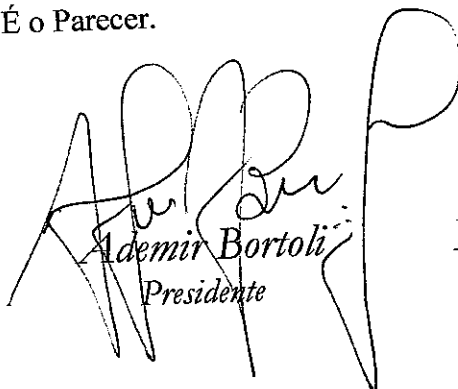 É o Parecer.
Ademir Bortoli
Presidente